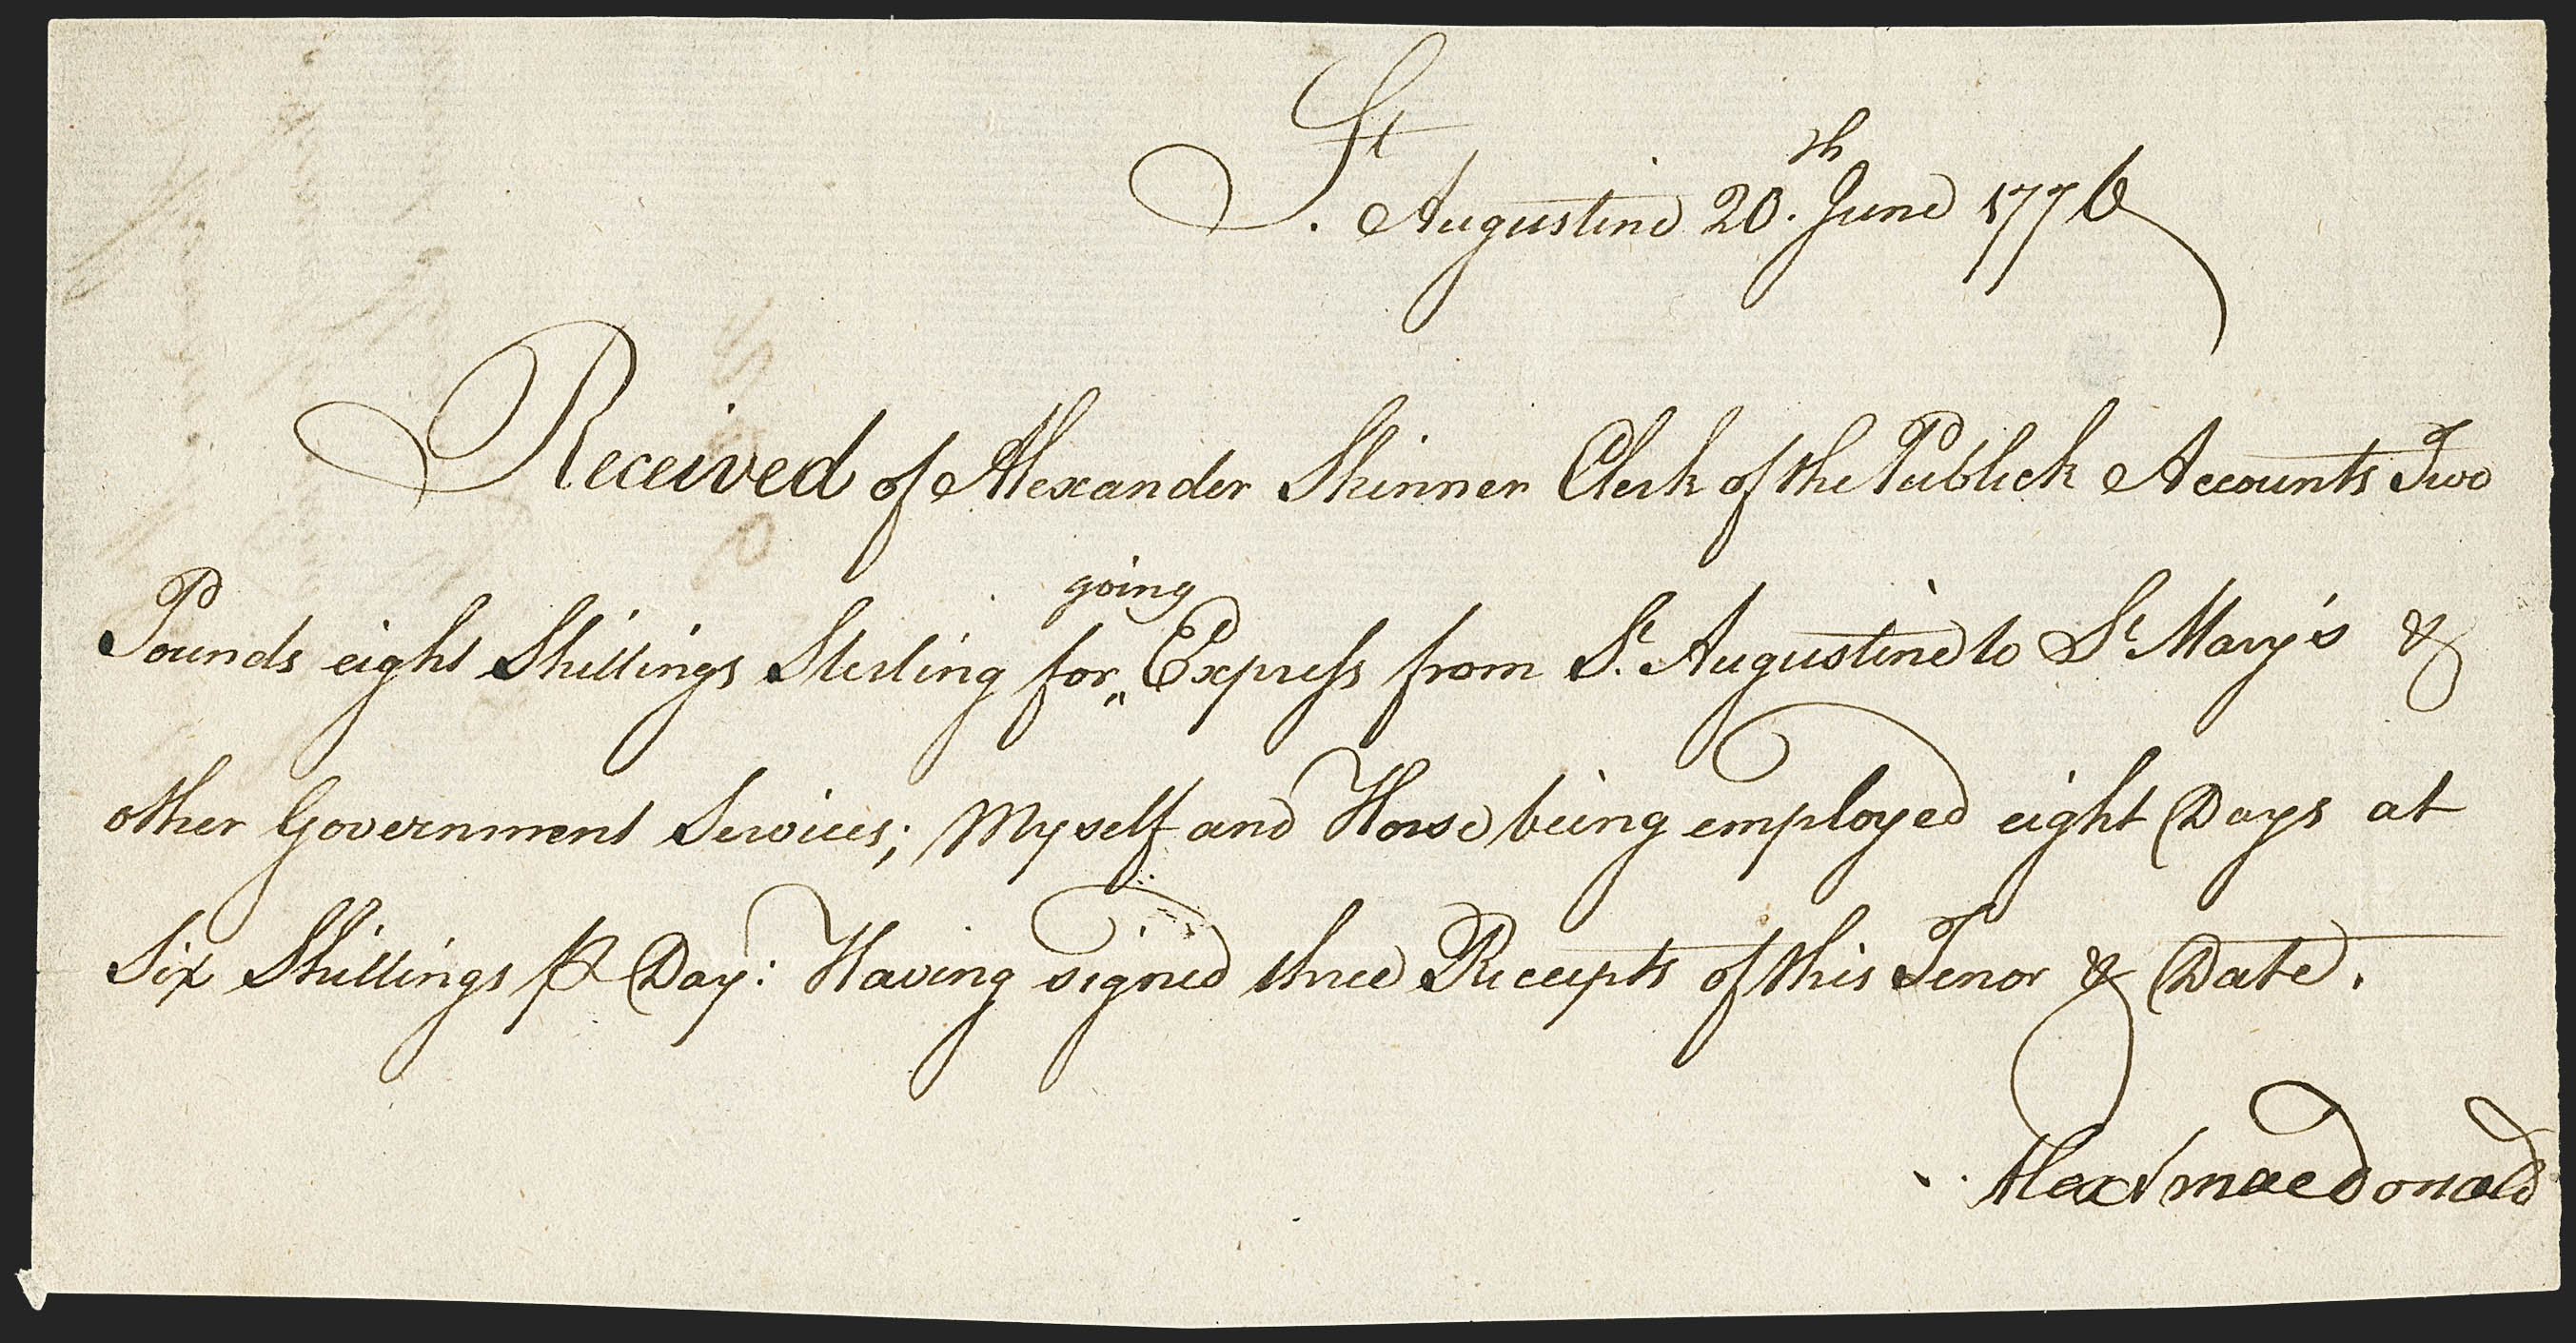 St. Augustine 20.th June 1776
Received of Alexander Skinner Clerk of the Publick Accounts Two
going
Pounds eight Shillings Sterling for„ Expreſs from St. Augustine to St. Mary's &
other Government Services; Myself and Horse being employed eight Days at
Six Shillings ⅌ Day: Having signed three Receipts of this Tenor & Date.
Alexr macdonald